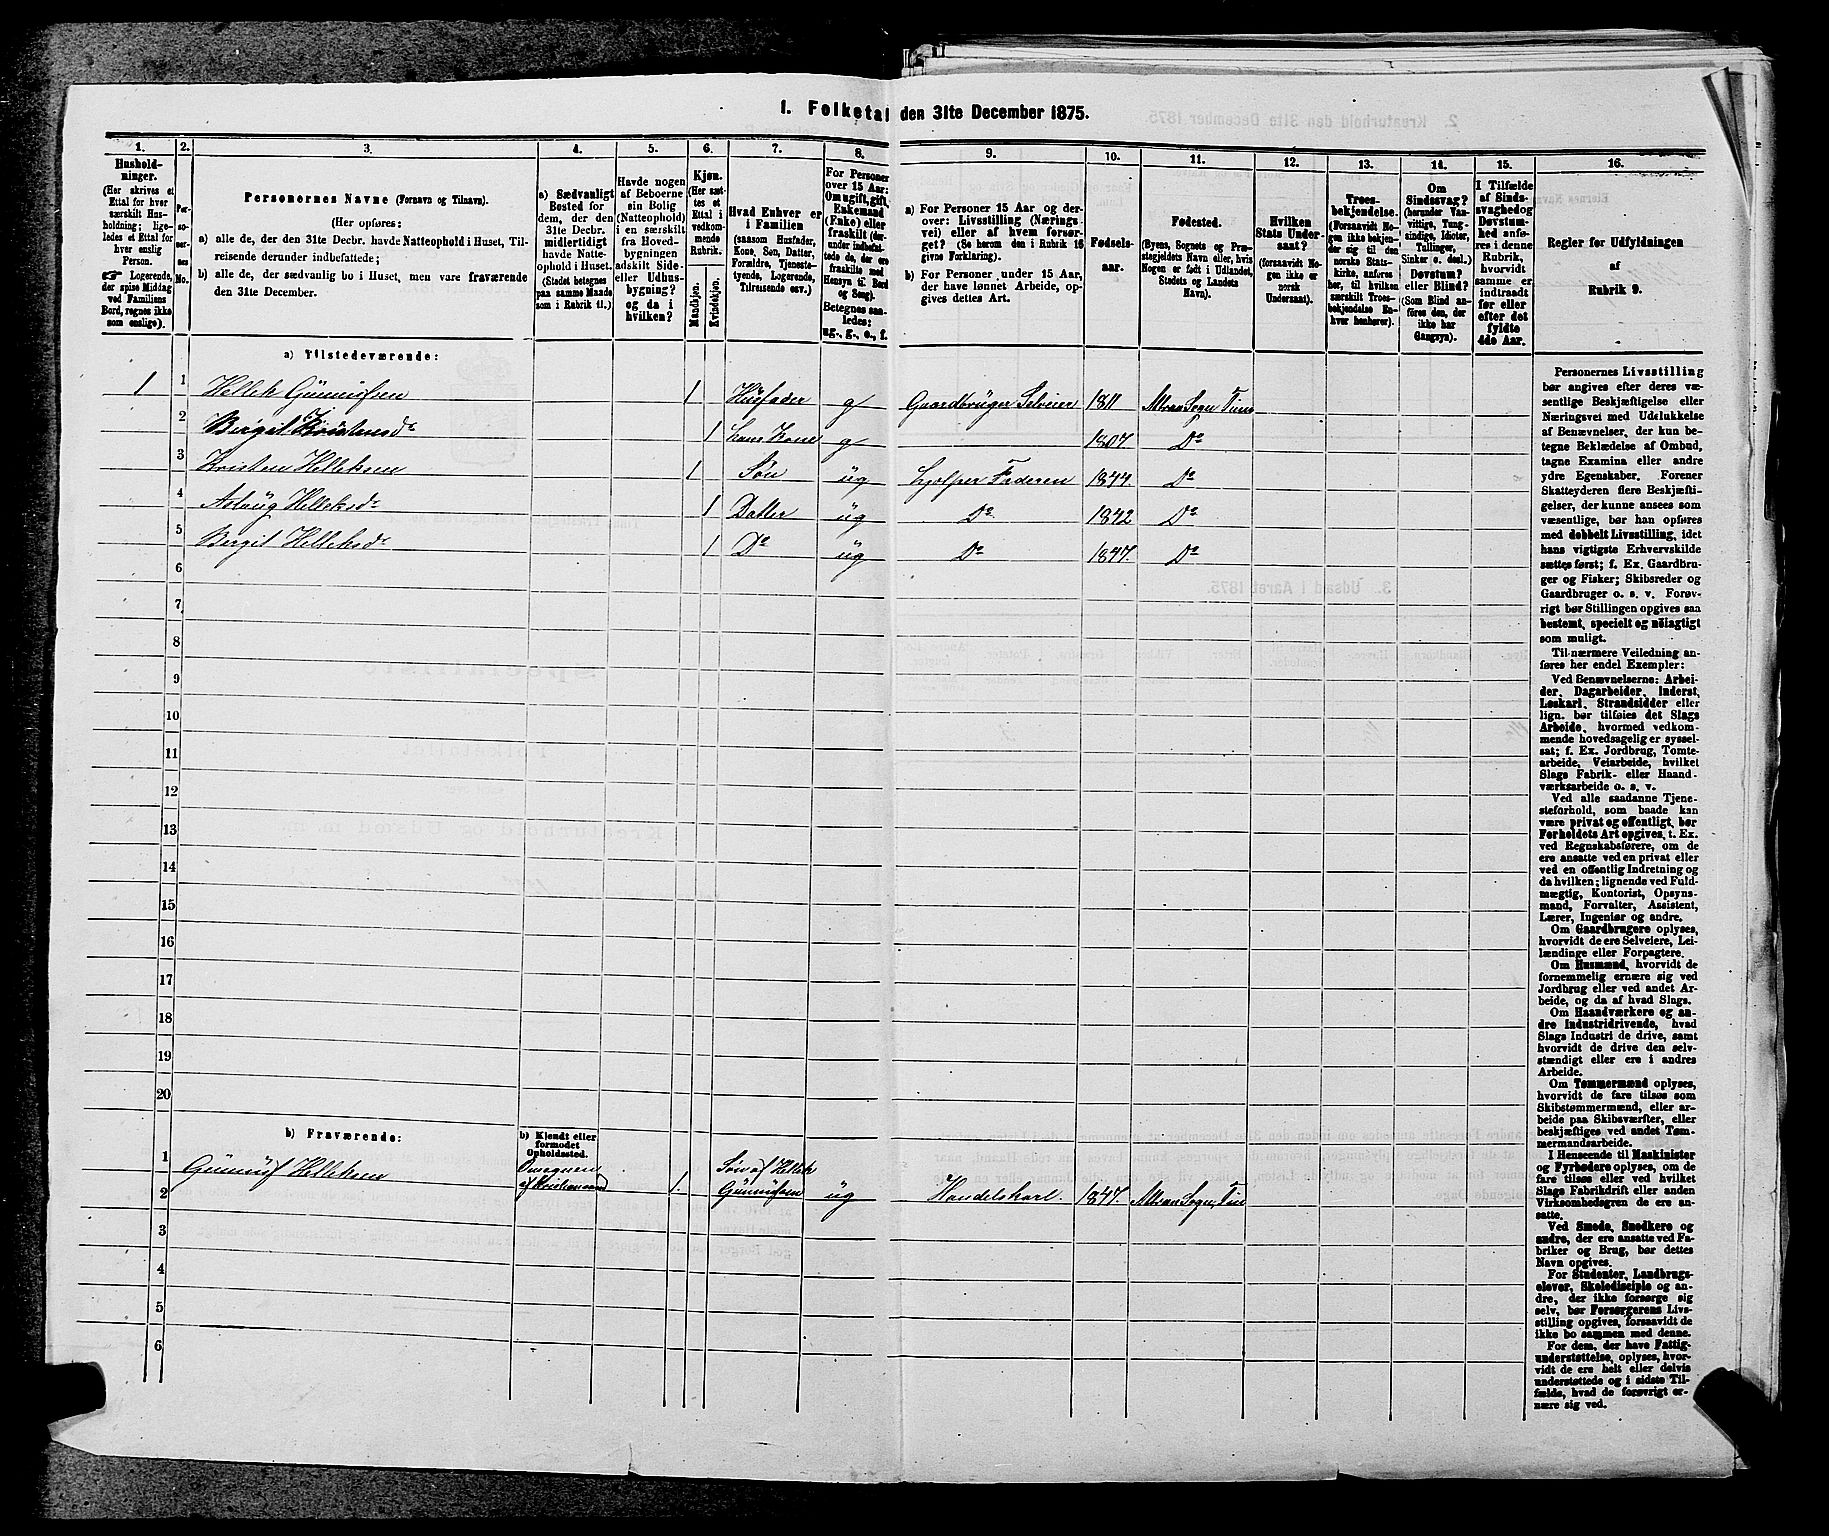 1. Folketal den 31te December 1875.
1. 2. 3. 4. 5. 6. 7. 8. 9. 10. 11. 12. 13. 14. 15. 16.
Hushold-
ninger.
(Her skrives et
Ettal for hver
særskilt Hus-
holdning; lige-
ledes et Ettal for
hver enslig
Person.
☞ Logerende,
der spise Middag
ved Familiens
Bord, regnes ikke
som enslige).
Per-
so-
ner-
nes
No.
Personernes Navne (Fornavn og Tilnavn).
(Her opføres:
a) alle de, der den 31te Decbr. havde Natteophold i Huset, Til-
reisende derunder indbefattede;
b) alle de, der sædvanlig bo i Huset, men vare fraværende
den 31te December.
a) Sædvanligt
Bosted for
dem, der den
31te Decbr.
midlertidigt
havde Natte-
ophold i Huset.
(Stedet betegnes
paa samme Maade
som i Rubrik 11.)
Havde nogen
af Beboerne
sin Bolig
(Natteophold)
i en særskilt
fra Hoved-
bygningen
adskilt Side-
eller Udhus-
bygning?
og da i
hvilken?
Kjøn.
(Her sæt-
tes et
Ettal i
vedkom-
mende
Rubrik.
Mandkjøn.
Kvindekjøn.
Hvad Enhver er
i Familien
(saasom Husfader,
Kone, Søn, Datter,
Forældre, Tjeneste-
tyende, Logerende,
Tilreisende osv.)
For Personer
over 15 Aar:
Om ugift, gift,
Enkemand
(Enke) eller
fraskilt (der-
under indbefat-
tede de, der ere
fraskilte med
Hensyn til Bord
og Seng).
Betegnes saa-
ledes:
ug., g., e., f.
a) For Personer 15 Aar og der-
over: Livsstilling (Nærings-
vei) eller af hvem forsør-
get? (Se herom den i Rubrik 16
givne Forklaring).
b) For Personer under 15 Aar,
der have lønnet Arbeide, op-
gives dettes Art.
Fødsels-
aar.
Fødested.
(Byens, Sognets og Præ-
stegjeldets Navn, eller hvis
Nogen er født i Udlandet,
Stedets og Landets
Navn).
Hvilken
Stats Under-
saat?
(forsaavidt No-
gen ikke er
norsk
Undersaat).
Troes-
bekjendelse.
(Forsaavidt No-
gen ikke bekjen-
der sig til den
norske Stats-
kirke, anføres
her, til hvilken
særskilt Troes-
bekjendelse En-
hver henhører).
Om
Sindssvag?
(herunder Van-
vittige, Tung-
sindige, Idioter,
Tullinger,
Sinker o. desl.)
Døvstum?
eller Blind?
(Som Blind an-
føres den, der
ikke har
Gangsyn).
I Tilfælde
af Sinds-
svaghed og
Døvstum-
hed anfø-
res i denne
Rubrik,
hvorvidt
samme er
indtraadt
før eller
efter det
fyldte
4de Aar.
Regler for Udfyldningen
af
Rubrik 9.
a) Tilstedeværende:
1 1 Hellek Gunnufsen 1 Husfader g Gaardbruger Selveier 1811 Sogn
2 Bergit Kristensd. 1 hans Kone g 1807 Do
3 Kristen Helleksen 1 Søn ug hjelper Faderen 1844. Do
4 Aslaug Helleksd. 1 Datter ug Do 1842 Do
5 Bergit Helleksd. 1 Do ug Do 1847. Do
6
7
8
9
10
11
12
13
14
15
16
17
18
19
20
b) Fraværende:
b) Kjendt eller
formodet
Opholdssted.
1 Gunnuf Helleksen Omegnen Søn af Hellek
2 af Kristiansand 1. Gunnufsen ug Handelskarl. 1847. Sogn
3
4
5
6
Personernes Livsstilling
bør angives efter deres væ-
sentlige Beskjæftigelse eller
Næringsvei med Udelukkelse
af Benævnelser, der kun be-
tegne Beklædelse af Ombud,
tagne Examina eller andre
ydre Egenskaber. Forener
Skatteyderen flere Beskjæfti-
gelser, der kunne ansees som
væsentlige, bør han opføres
med dobbelt Livsstilling, idet
hans vigtigste Erhvervskilde
sættes først; f. Ex. Gaardbru-
ger og Fisker; Skibsreder og
Gaardbruger o. s. v. Forøv-
rigt bør Stillingen opgives saa
bestemt, specielt og nøiagtigt
som muligt.
Til nærmere Veiledning an-
føres her endel Exempler:
Ved Benævnelserne: Arbei-
der, Dagarbeider, Inderst,
Løskarl, Strandsidder eller
lign. bør tilføies det Slags
Arbeide, hvormed vedkom-
mende hovedsagelig er syssel-
sat; f. Ex. Jordbrug, Tomte-
arbeide, Veiarbeide, hvilket
Slags Fabrik- eller Haand-
værksarbeide o. s. v.
Ved alle saadanne Tjene-
steforhold, som baade kan
være privat og offentligt, bør
Forholdets Art opgives, t. Ex.
ved Regnskabsførere, om de
ere ansatte ved en privat eller
ved en offentlig Indretning og
da hvilken; lignende ved Fuld-
mægtig, Kontorist, Opsyns-
mand, Forvalter, Assistent,
Lærer, Ingeniør og andre.
Om Gaardbrugere oplyses,
hvorvidt de ere Selveiere, Lei-
lændinge eller Forpagtere.
Om Husmænd, hvorvidt de
fornemmelig ernære sig ved
Jordbrug eller ved andet Ar-
beide, og da af hvad Slags.
Om Haandværkere og an-
dre Industridrivende, hvad
Slags Industri de drive, samt
hvorvidt de drive den selv-
stændigt eller ere i andres
Arbeide.
Om Tømmermænd oplyses,
hvorvidt de fare tilsøs som
Skibstømmermænd, eller ar-
beide paa Skibsværfter, eller
beskjæftiges ved andet Tøm-
mermandsarbeide.
I Henseende til Maskinister
og Fyrbødere oplyses, om de
fare tilsøs eller ved hvilket
Slags Fabrikdrift eller anden
Virksomhedsgren de ere an-
satte.
Ved Smede, Snedkere og
andre, der ere ansatte ved Fa-
briker og Brug, bør dettes
Navn opgives.
For Studenter, Landbrugs-
elever, Skoledisciple og an-
dre, der ikke forsørge sig
selv, bør Forsørgerens Livs-
stilling opgives, forsaavidt de
ikke bo sammen med denne.
For dem, der have Fattig-
understøttelse, oplyses, hvor-
vidt de ere helt eller delvis
understøttede og i sidste Til-
fælde, hvad de forøvrigt er-
nære sig ved.